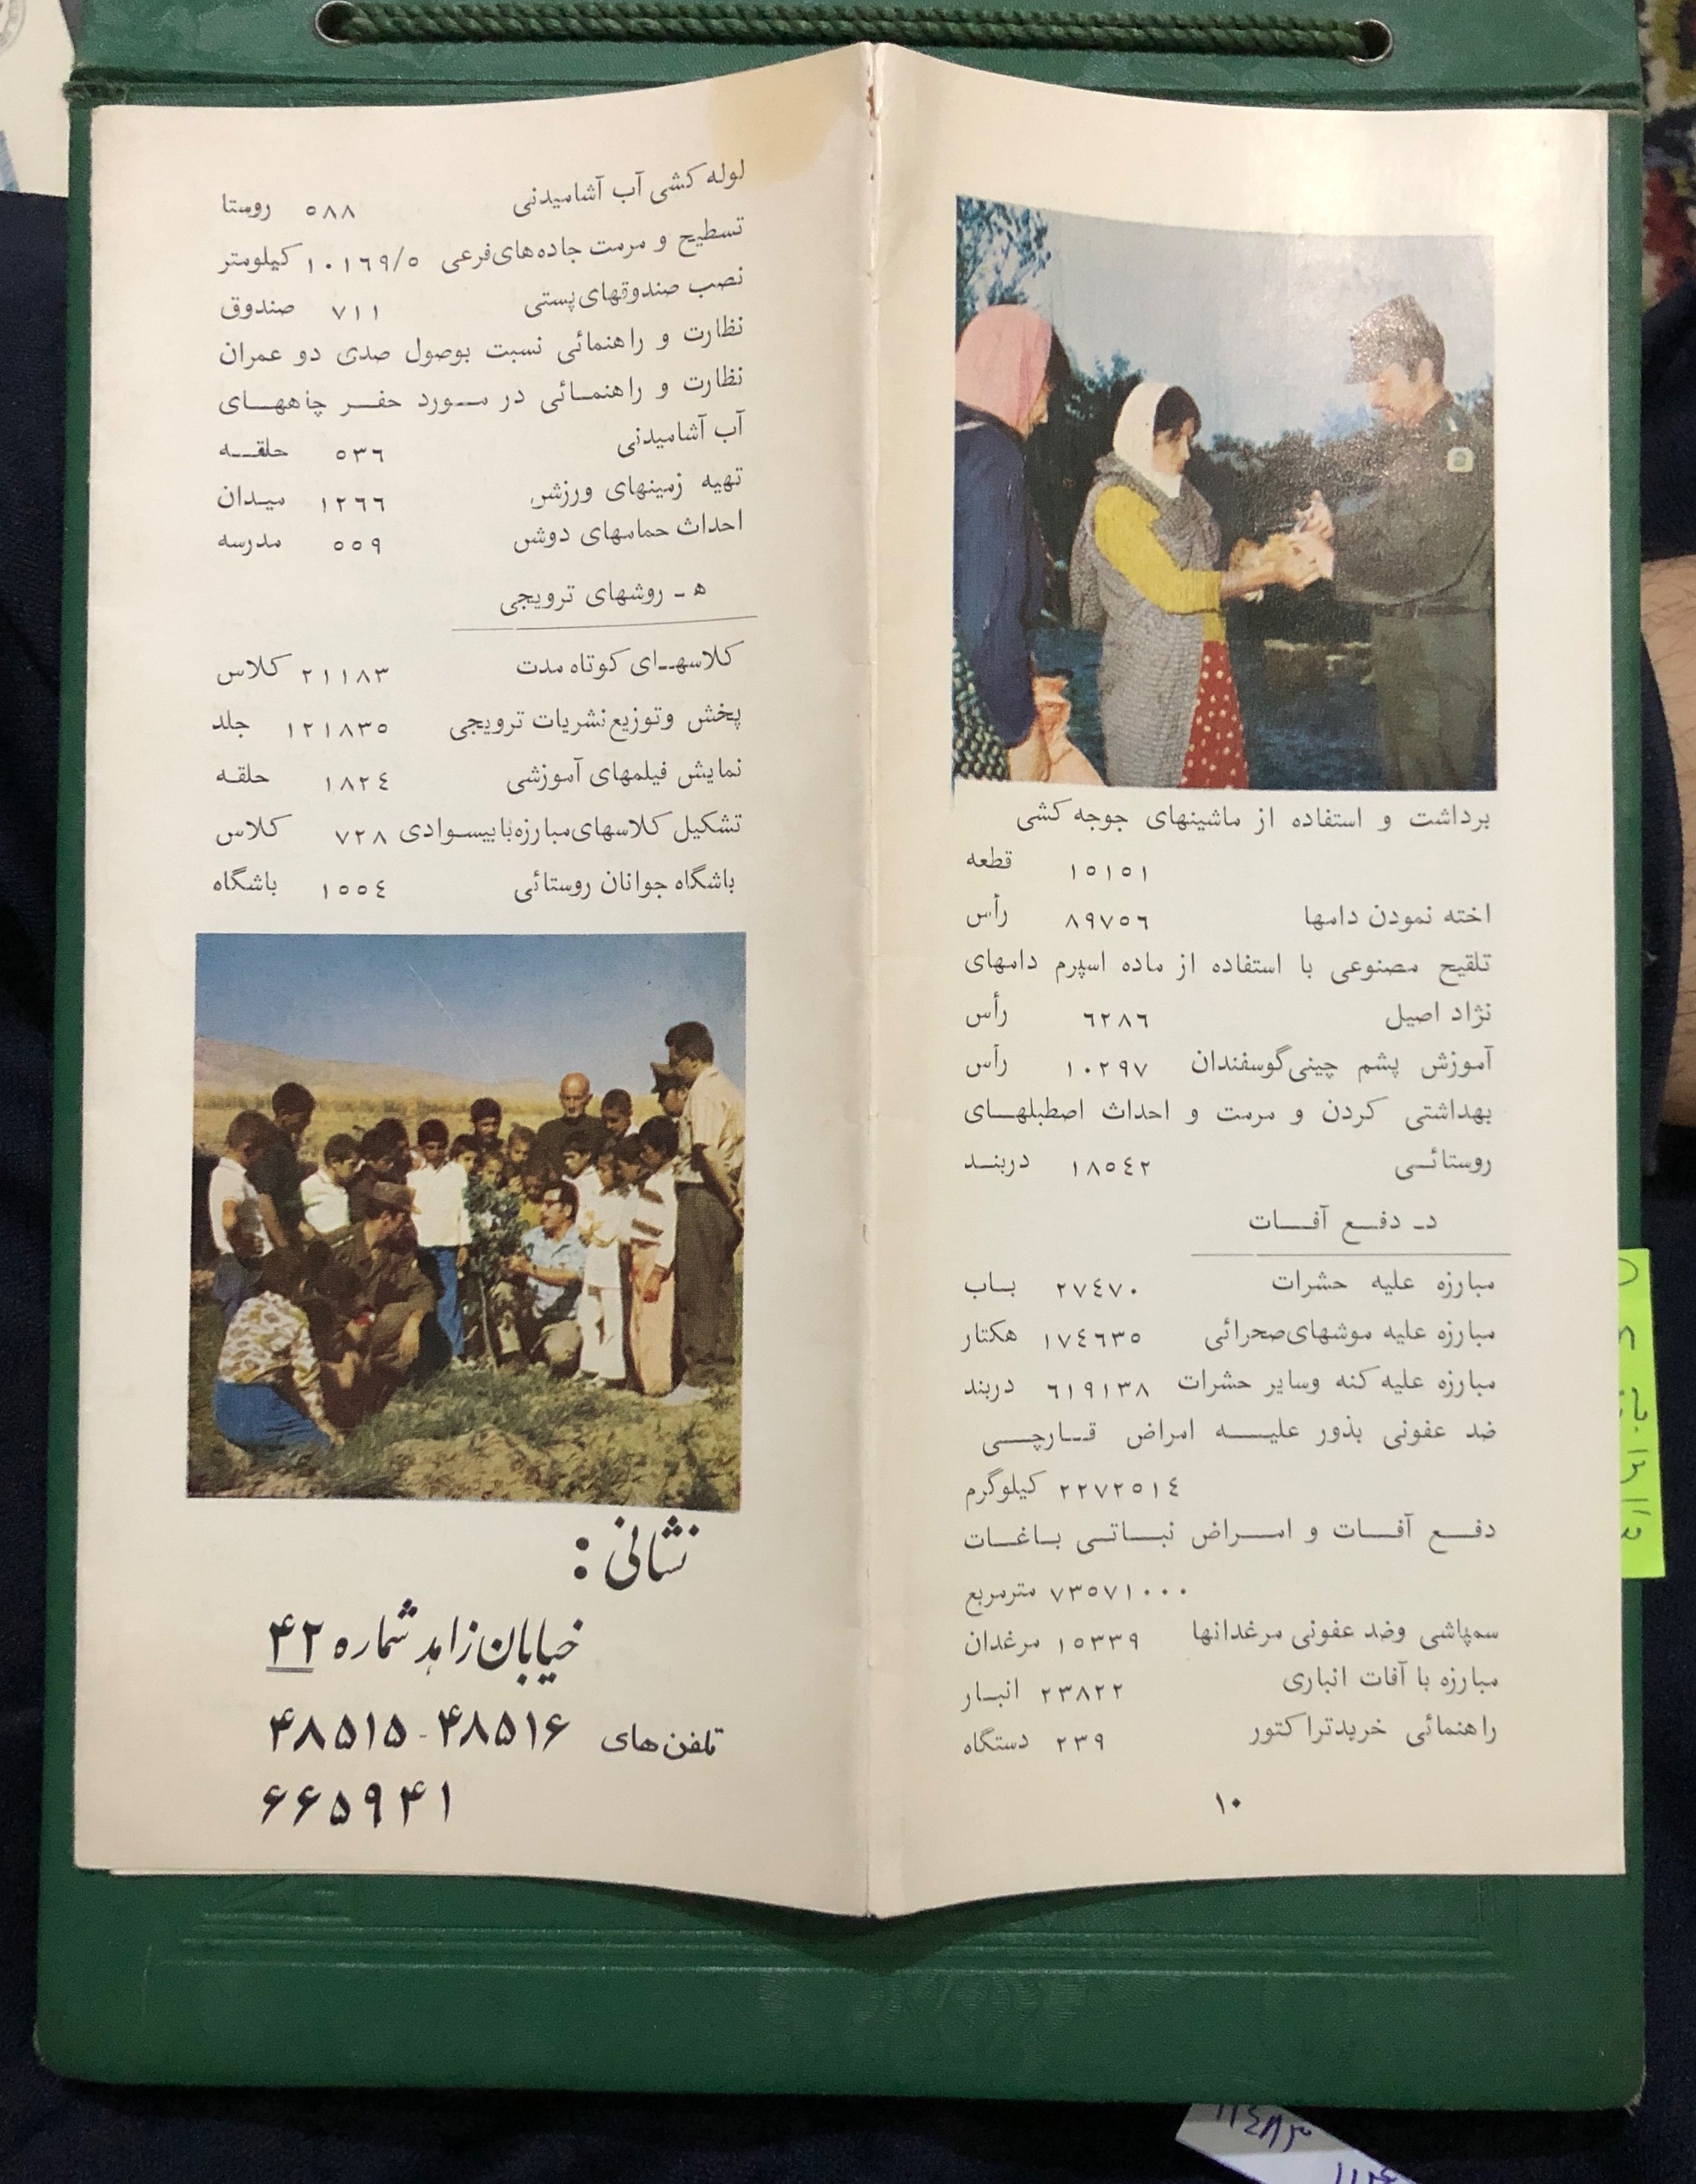 برداشت و استفاده از ماشینهای جوجه کشی
۱۵۱۵۱ قطعه
اخته نمودن دامها ۸۹۷۵٦ رأس
تلقیح مصنوعی با استفاده از ماده اسپرم دامهای
نژاد اصیل ٦۲۸٦ رأس
آموزش پشم چینی گوسفندان ۱۰۲۹۷ رأس
بهداشتی کردن و مرمت و احداث اصطبلهای
روستائی ۱۸۵٤۲ دربند
د- دفع آفات
مبارزه علیه حشرات ۲۷٤۷۰ باب
مبارزه علیه موشهای صحرائی ۱۷٤٦۳۵ هکتار
مبارزه علیه کنه وسایر حشرات ٦۱۹۱۳۸ دربند
ضد عفونی بذور علیه امراض قارچی
۲۲۷۲۵۱٤ کیلوگرم
دفع آفات و امراض نباتی باغات
۷۳۵۷۱۰۰۰ مترمربع
سمپاشی وضد عفونی مرغدانها ۱۵۳۳۹ مرغدان
مبارزه با آفات انباری ۲۳۸۲۲ انبار
راهنمائی خریدتراکتور ۲۳۹ دستگاه
۱۰
لوله کشی آب آشامیدنی ۵۸۸ روستا
تسطیح و مرمت جاده‌های فرعی ۱۰۱٦۹/۵ کیلومتر
نصب صندوقهای پستی ۷۱۱ صندوق
نظارت و راهنمائی نسبت بوصول صدی دو عمران
نظارت و راهنمائی در مورد حفر چاههای
آب آشامیدنی ۵۳٦ حلقه
تهیه زمینهای ورزش ۱۲٦٦ میدان
احداث حمامهای دوش ۵۵۹ مدرسه
ه - روشهای ترویجی
کلاسهای کوتاه مدت ۲۱۱۸۳ کلاس
پخش وتوزیع نشریات ترویجی ۱۲۱۸۳۵ جلد
نمایش فیلمهای آموزشی ۱۸۲٤ حلقه
تشکیل کلاسهای مبارزه با بیسوادی ۷۲۸ کلاس
باشگاه جوانان روستائی ۱۵۵٤ باشگاه
نشانی :
خیابان زاهد شماره ۴۲
تلفن های ۴۸۵۱۶ - ۴۸۵۱۵
۶۶۵۹۴۱